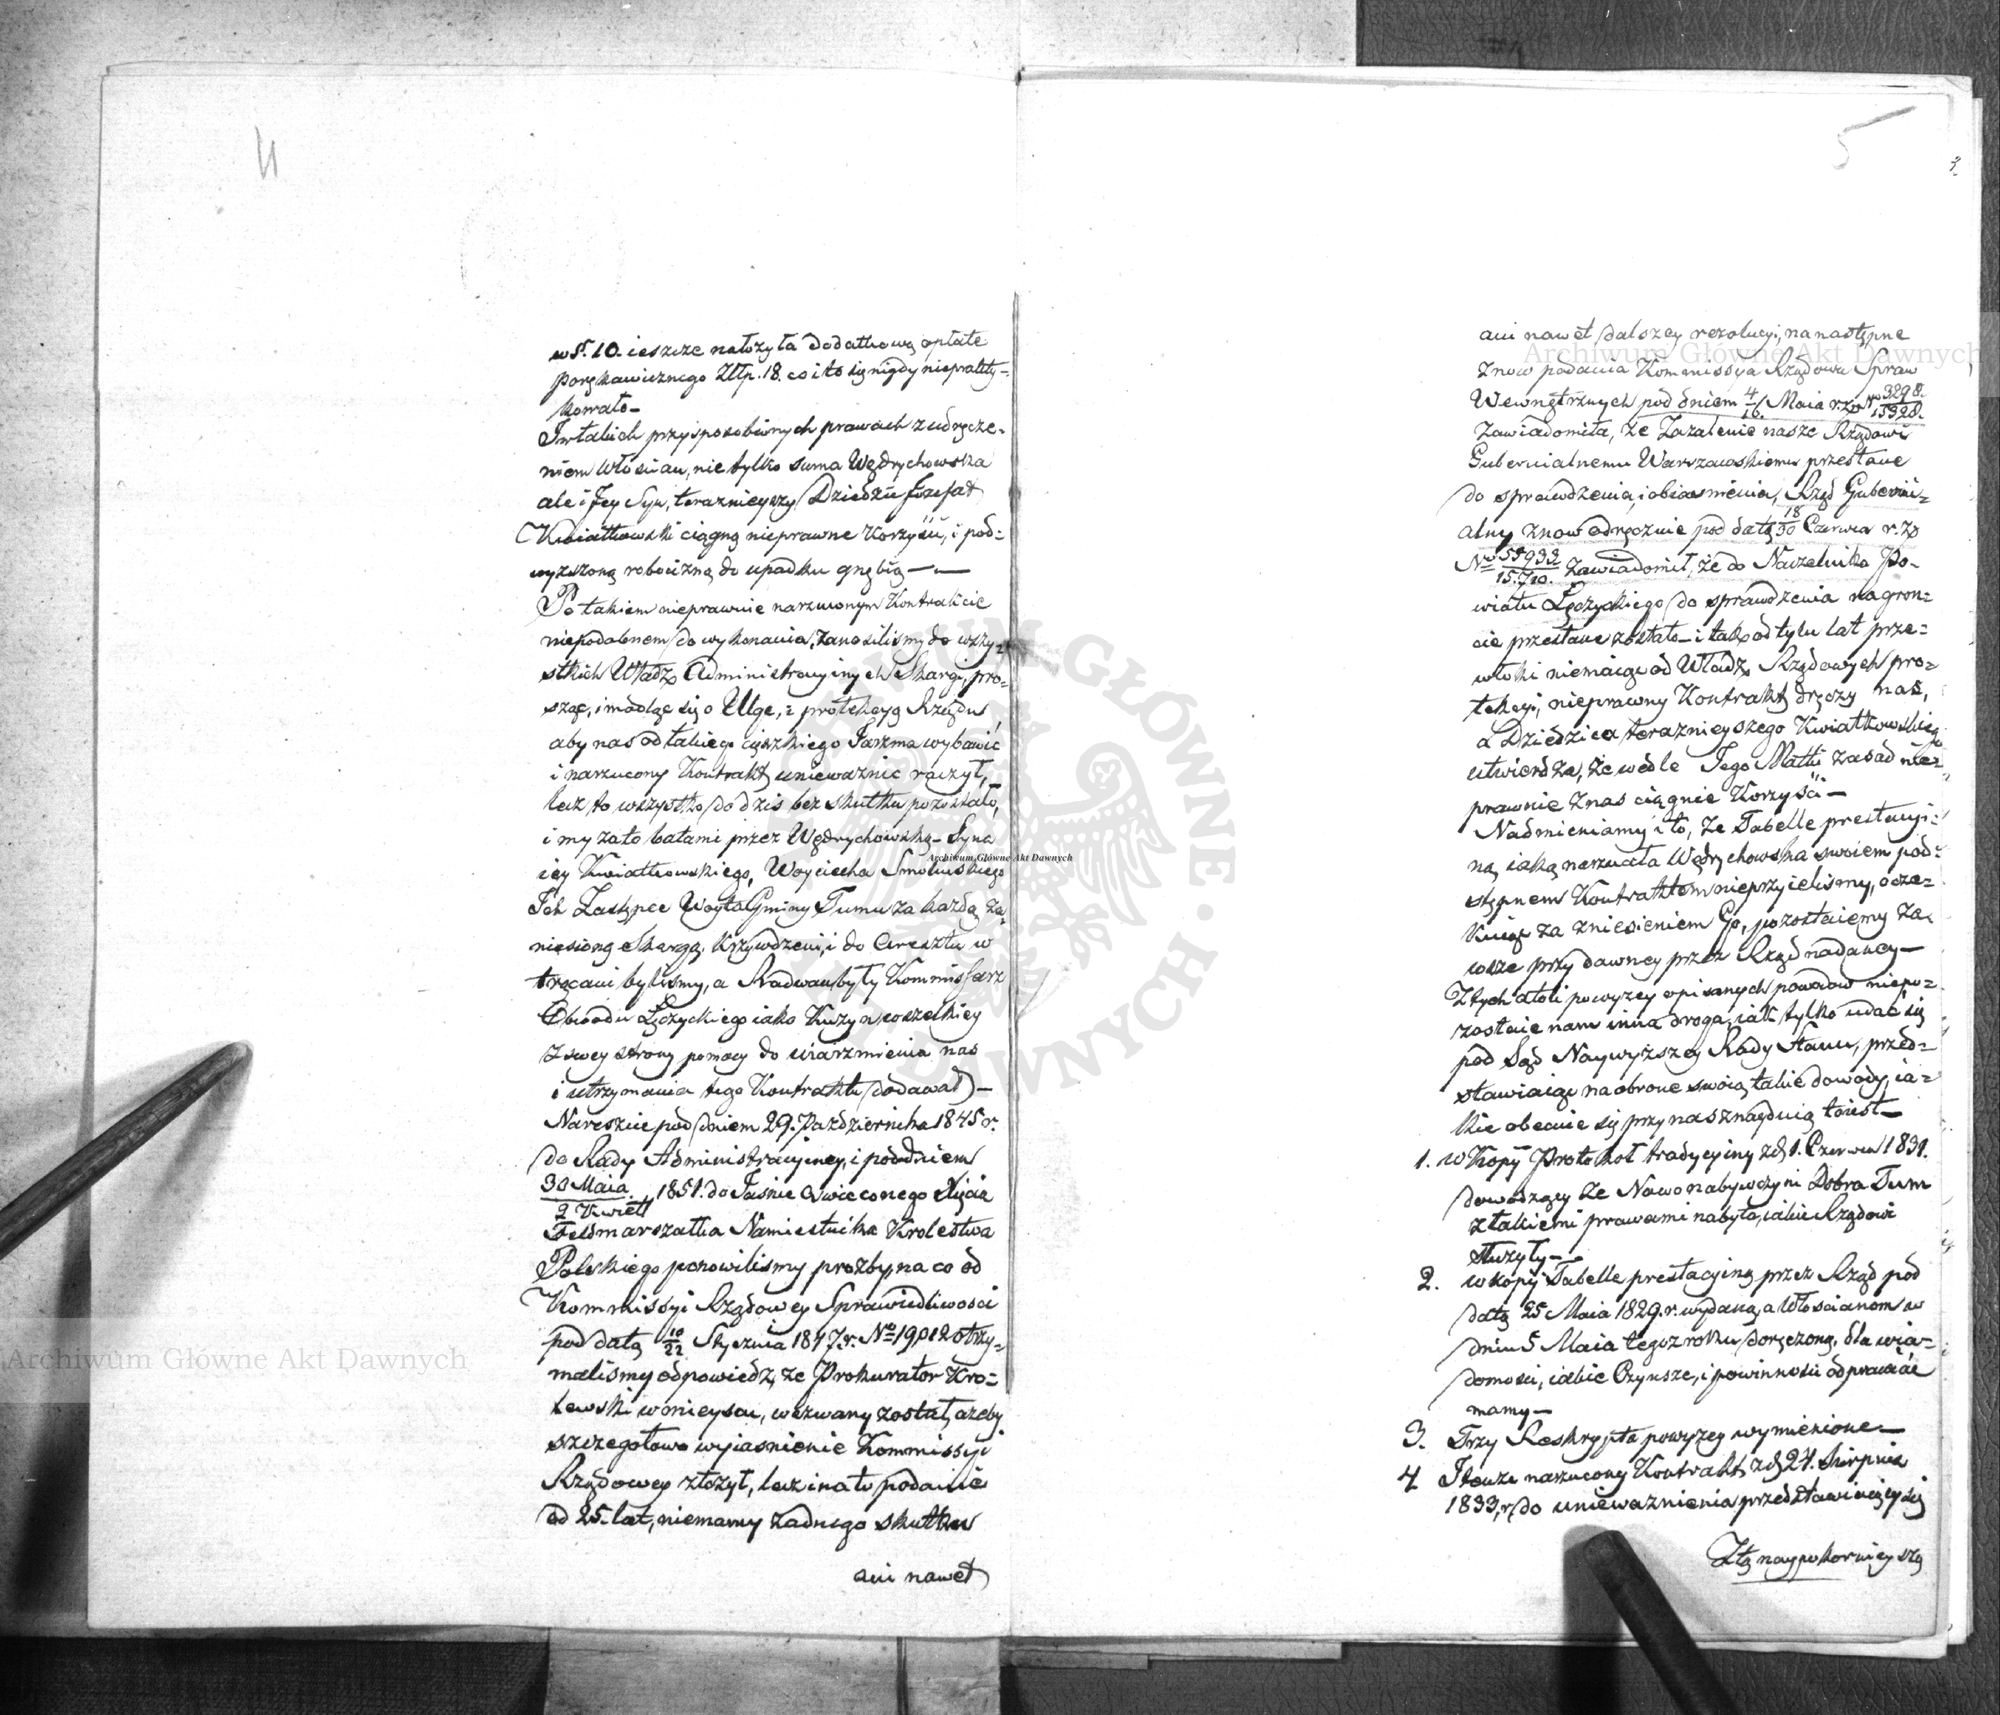 4
w §. 10. ieszcze nałożyła dodatkową opłatę
porękawicznego Złp. 18. co i to się nigdy niepraktY-
kowało—
I w takich przysposobionych prawach z udręcze-
niem Włościan, nie tylko sama Wędrychowska
ale i Jey Syn, teraznieyszy Dziedzic Jozefat
Kwiatkowski ciągną nieprawne Korzyści, i pod-
wyższoną robocizną do upadku gnębią——
Po takiem nieprawnie narzuconym Kontrakcie
niepodobnem do wykonania, zanosiliśmy do wszy-
stkich Władz Administracyinych Skargi, pro-
sząc, i modląc się o Ulgę, i protekcyą Rządu,
aby nas od takiego ciężkiego Jarzma wybawić
i narzucony Kontrakt unieważnić raczył,
lecz to wszystko do dziś bez skutku pozostało,
i my za to batami przez Wędrychowską- Syna
iey Kwiatkowskiego, Woyciecha Smoluskiego
Ich Zastępcę Woyta Gminy Tumu za każdą za-
niesioną Skargę, Krzywdzeni, i do Aresztu w
trącani byliśmy, a Radwan były Kommissarz
Obwodu Łęczyckiego iako Kuzyn wszelkiey
z swey strony pomocy do uiarzmienia nas
i utrzymania tego Kontraktu dodawał—
Nareszcie pod dniem 29. Października 1845 r.
do Rady Administracyiney, i pod dniem
30 Maia / 2 Kwiet 1851. do Jaśnie Oświeconego Xięcia
Feldmarszałka Namiestnika Krolestwa
Polskiego ponowiliśmy prozby, na co od
Kommissyi Rządowey Sprawiedliwości
pod datą 10/22 Stycznia 1847 r. No 19012 otrzy-
maliśmy odpowiedz, że Prokurator Kro-
lewski w onieyszu, wezwany został, ażeby
szczegołowe wyiaśnienie Kommissyi
Rządowey złożył, lecz i na to podanie
od 25. lat, niemamy żadnego skutku
ani nawet
5
3
ani nawet dalszey rezolucyi, na następne
znow podania Kommissya Rządowa Spraw
Wewnętrznych pod dniem 4/16 Maia r.zo No 3298./15328.
zawiadomiła, że Zażalenie nasze Rządowi
Gubernialnemu Warszawskiemu przesłane
do sprawdzenia, i obiaśnienia, Rząd Guberni-
alny znow odręcznie pod datą 18/30 Czerwca r.zo
No 55933/15.710. zawiadomił, że do Naczelnika Po-
wiatu Łęczyckiego do sprawdzenia na gron-
cie przesłane zostało—i tak od tylu lat prze-
włoki niemaiąc od Władz Rządowych pro-
tekcyi, nieprawny Kontrakt dręczy nas,
a Dziedzica teraznieyszego Kwiatkowskiego
utwierdza, że wedle Jego Matki zasad nie-
prawnie z nas ciągnie Korzyści—
Nadmieniamy i to, że Tabelle prestacyi-
ną iaką narzucała Wędrychowska swoiem pod-
stępnem Kontraktem nieprzyieliśmy, ocze-
kuiąc za zniesieniem Go, pozostaiemy za-
wsze przy dawney przez Rząd nadaney—
Z tych atoli powyżey opisanych powodow niepo-
zostaie nam inna droga, iak tylko udać się
pod Sąd Naywyższey Rady Stanu, przed-
stawiaiąc na obronę swoią takie dowody, ia-
kie obecnie się przy nas znayduią to iest—
1. w Kopij Protokoł tradycyiny z d. 1. Czerwca 1831.
dowodzący że Nowonabywczyni Dobra Tum
z takiemi prawami nabyła, iakie Rządowi
służyły—
2. w kopij Tabelle prestacyiną przez Rząd pod
datą 25 Maia 1829. r. wydaną, a Włościanom w
dniu 5 Maia tegoż roku doręczoną, dla wia-
domości, iakie Czynsze, i powinności odprawiać
mamy—
3. Trzy Reskrypta powyżey wymienione—
4 Tenże narzucony Kontrakt z d. 27. Sierpnia
1833, r. do unieważnienia przedstawiaiący się
Z tą naypokornieyszą
Archiwum Główne Akt Dawnych
Archiwum Główne Akt Dawnych
Archiwum Główne Akt Dawnych
ARCHIWUM GŁÓWNE AKT DAWNYCH